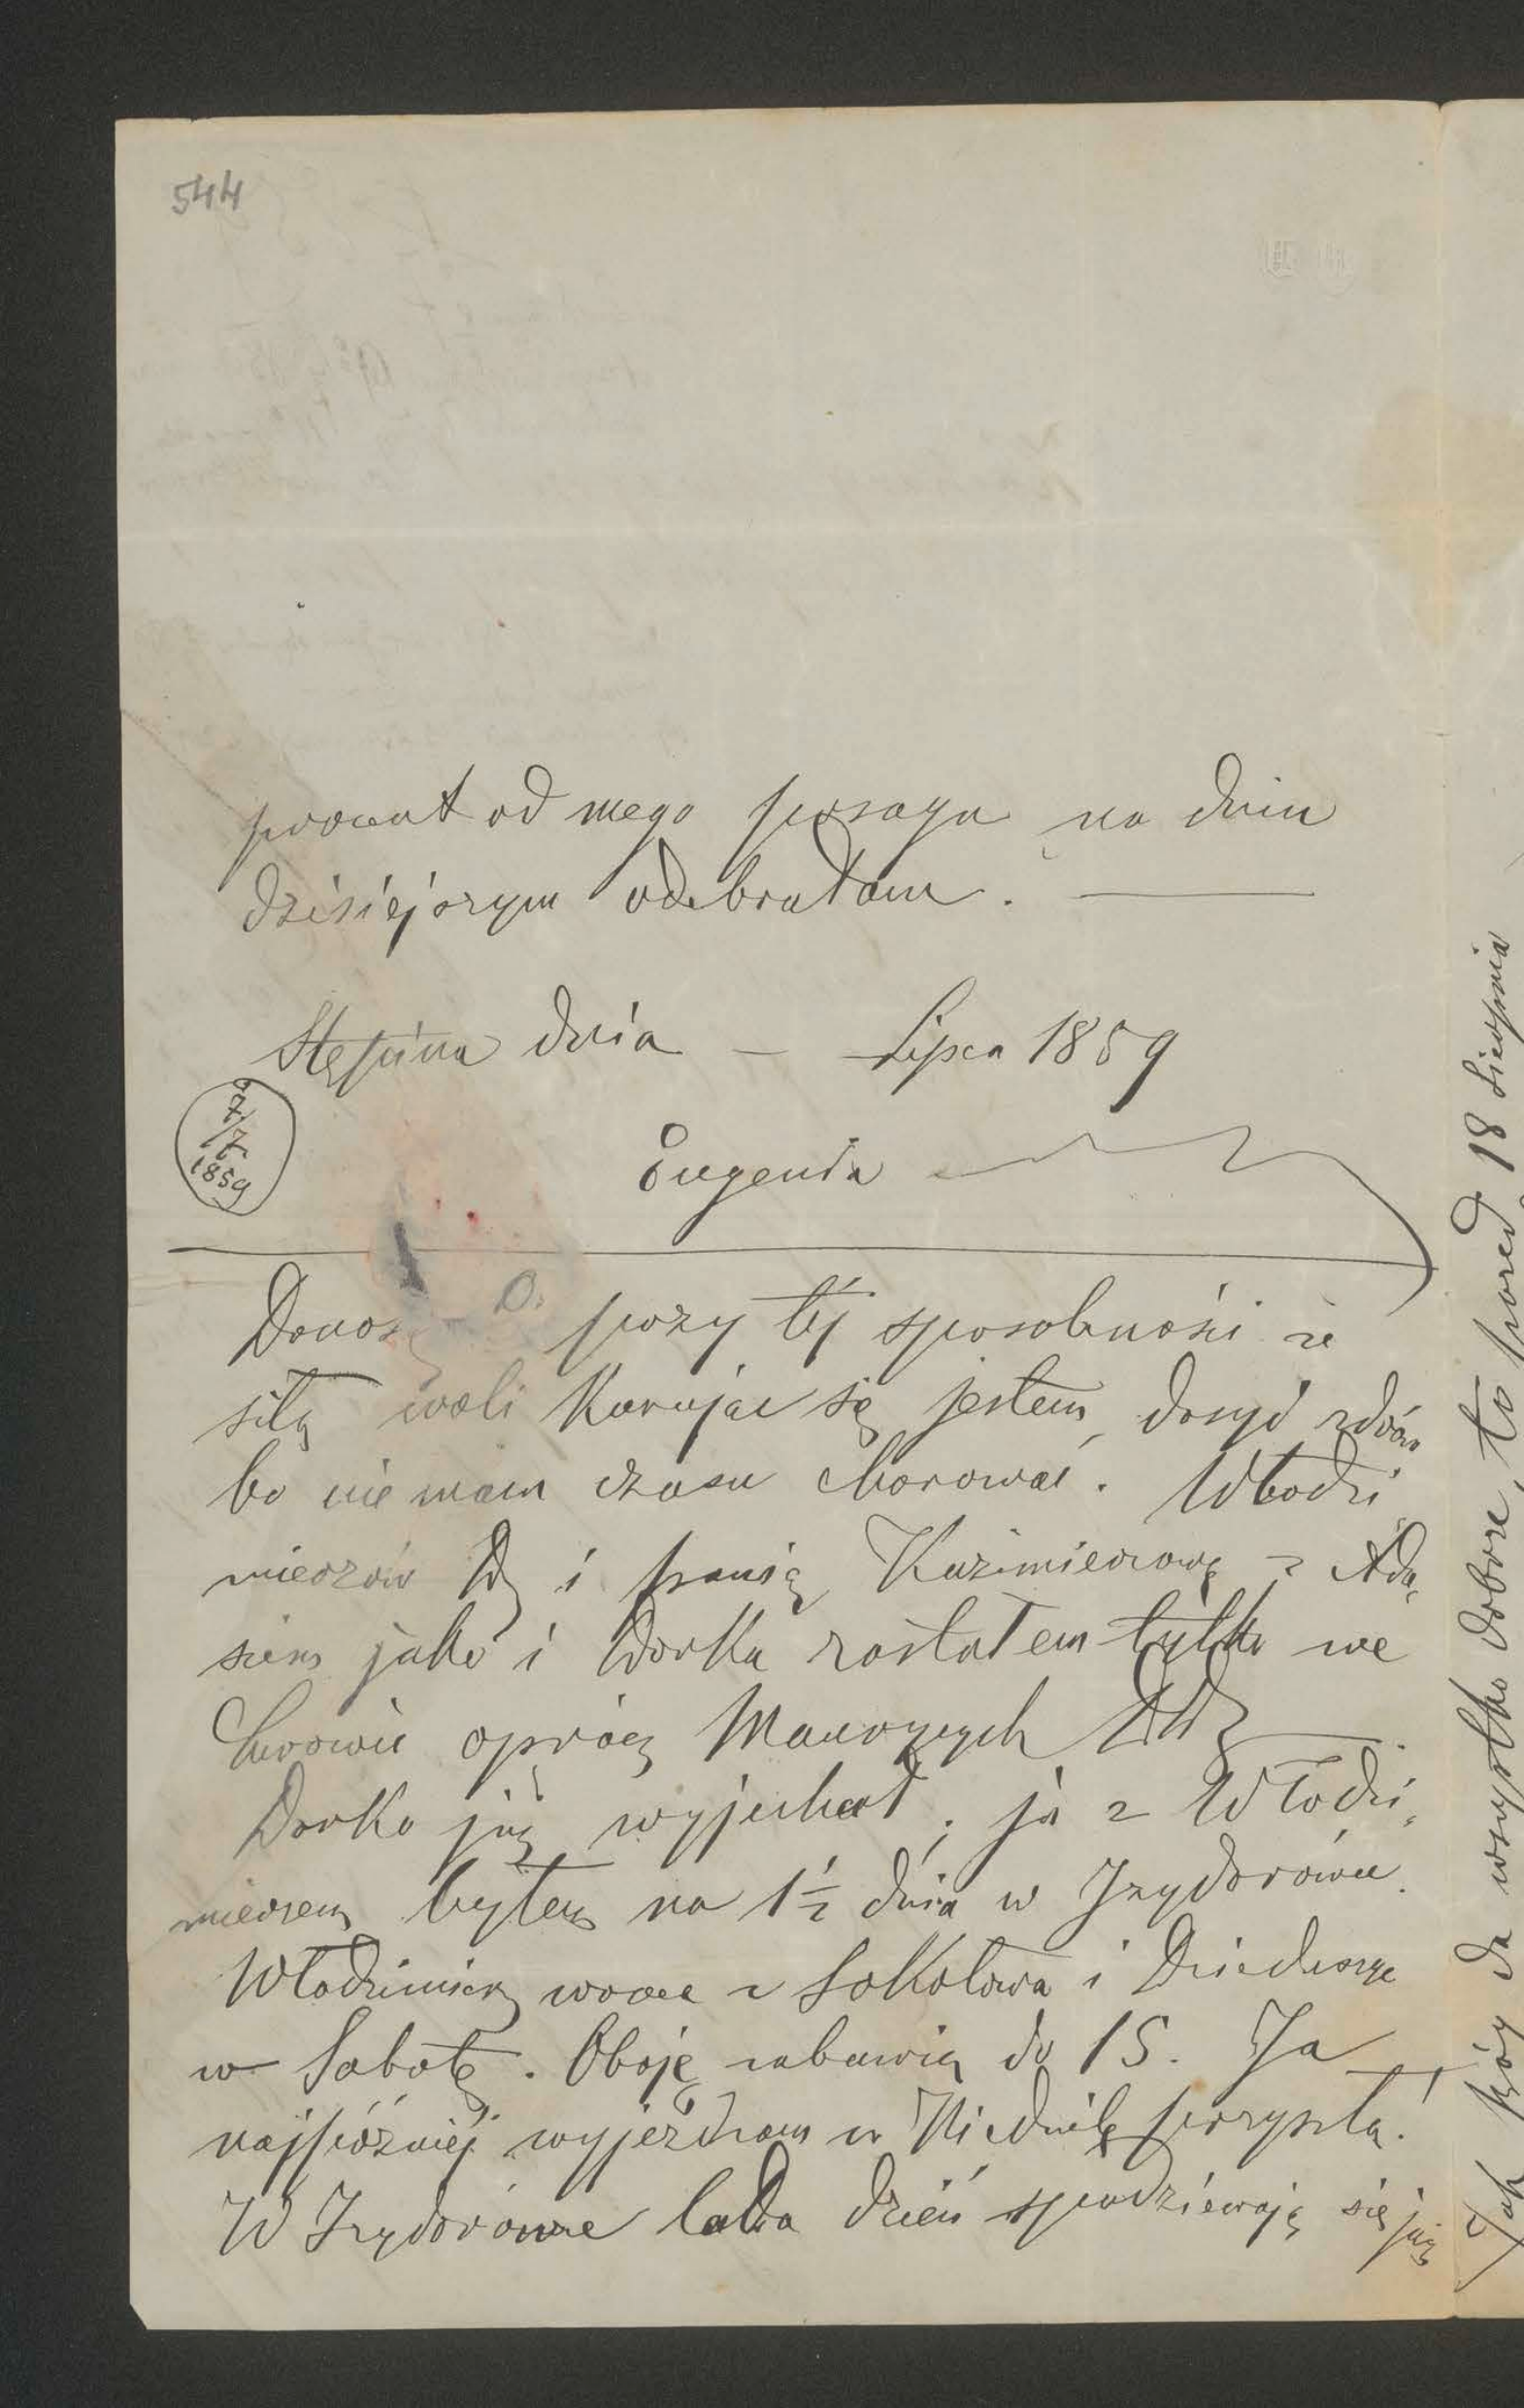 544
procent od mego posagu na dniu
dzisiejszym odebrałam.
Stępina dnia — Lipca 1859
7/7 1859
Eugenia
Donoszę przy téj sposobności że
siłą woli kurując się jestem dosyć zdrów
bo nie mam czasu chorować. Włodzi
mierzów i panią Kazimierzową z Ada
siem jako i Dorka zastałem tylko we
Lwowie oprócz Maurycych
Dorko już wyjechał; ja z Włodzi
mierzem byłem na 1½ dnia w Izydorówce.
Włodzimierz wraca z Sokołowa i Dzieduszyc
w Sobotę. Oboje zabawią do 15. Ja
najpóźniéj wyjeżdżam w Niedzielę przyszłą.
W Izydorówce lada dzień spodziewają się już
Jak Bóg da wszystko dobrze, to przed 18 Sierpnia